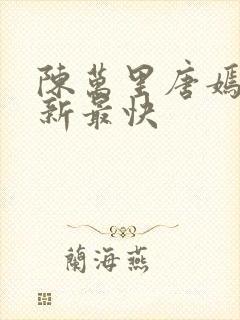 陳萬里唐嫣
新最快
蘭海燕